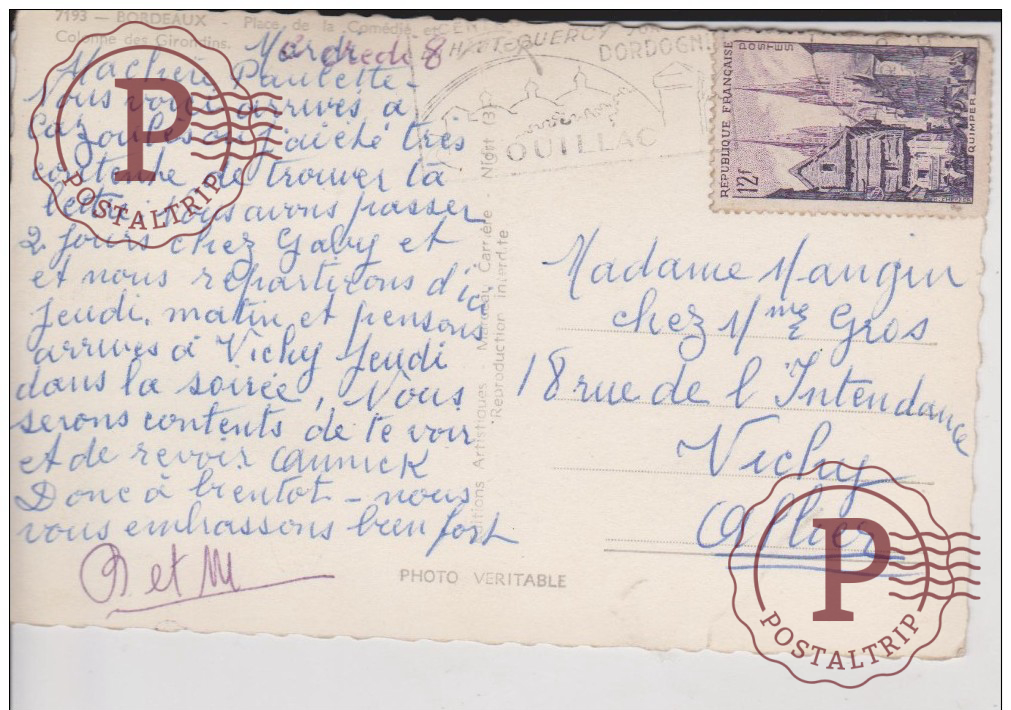 7193 — BORDEAUX - Place de la Comédie et
Colonne des Girondins.
8
Ma chère Paulette -
Nous voici arrivés à
Cazoules au très
contente de trouver ta
lettre. nous avons passer
2 jours chez Gaby et
et nous repartirons d'ici
jeudi, matin et pensons
arriver à Vichy jeudi
dans la soirée, Nous
serons contents de te voir
et de revoir Annick
Donc à bientot - nous
vous embrassons bien fort
et M
PHOTO VERITABLE
Editions Artistiques - Carrière - Niort
Reproduction interdite
HAUT-QUERCY
DORDOGNE
SOUILLAC
REPUBLIQUE FRANÇAISE
POSTES
12f
QUIMPER
Madame Mangin
chez Mme Gros
18 rue de l'Intendance
Vichy
Allier
P
POSTALTRIP
P
POSTALTRIP